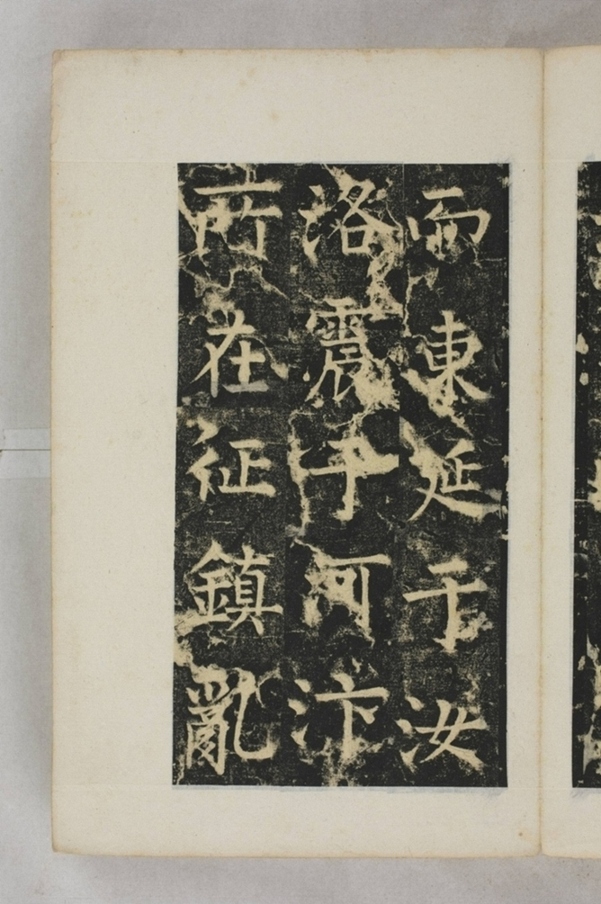 而東延于汝
洛震于河汴
所在征鎮亂